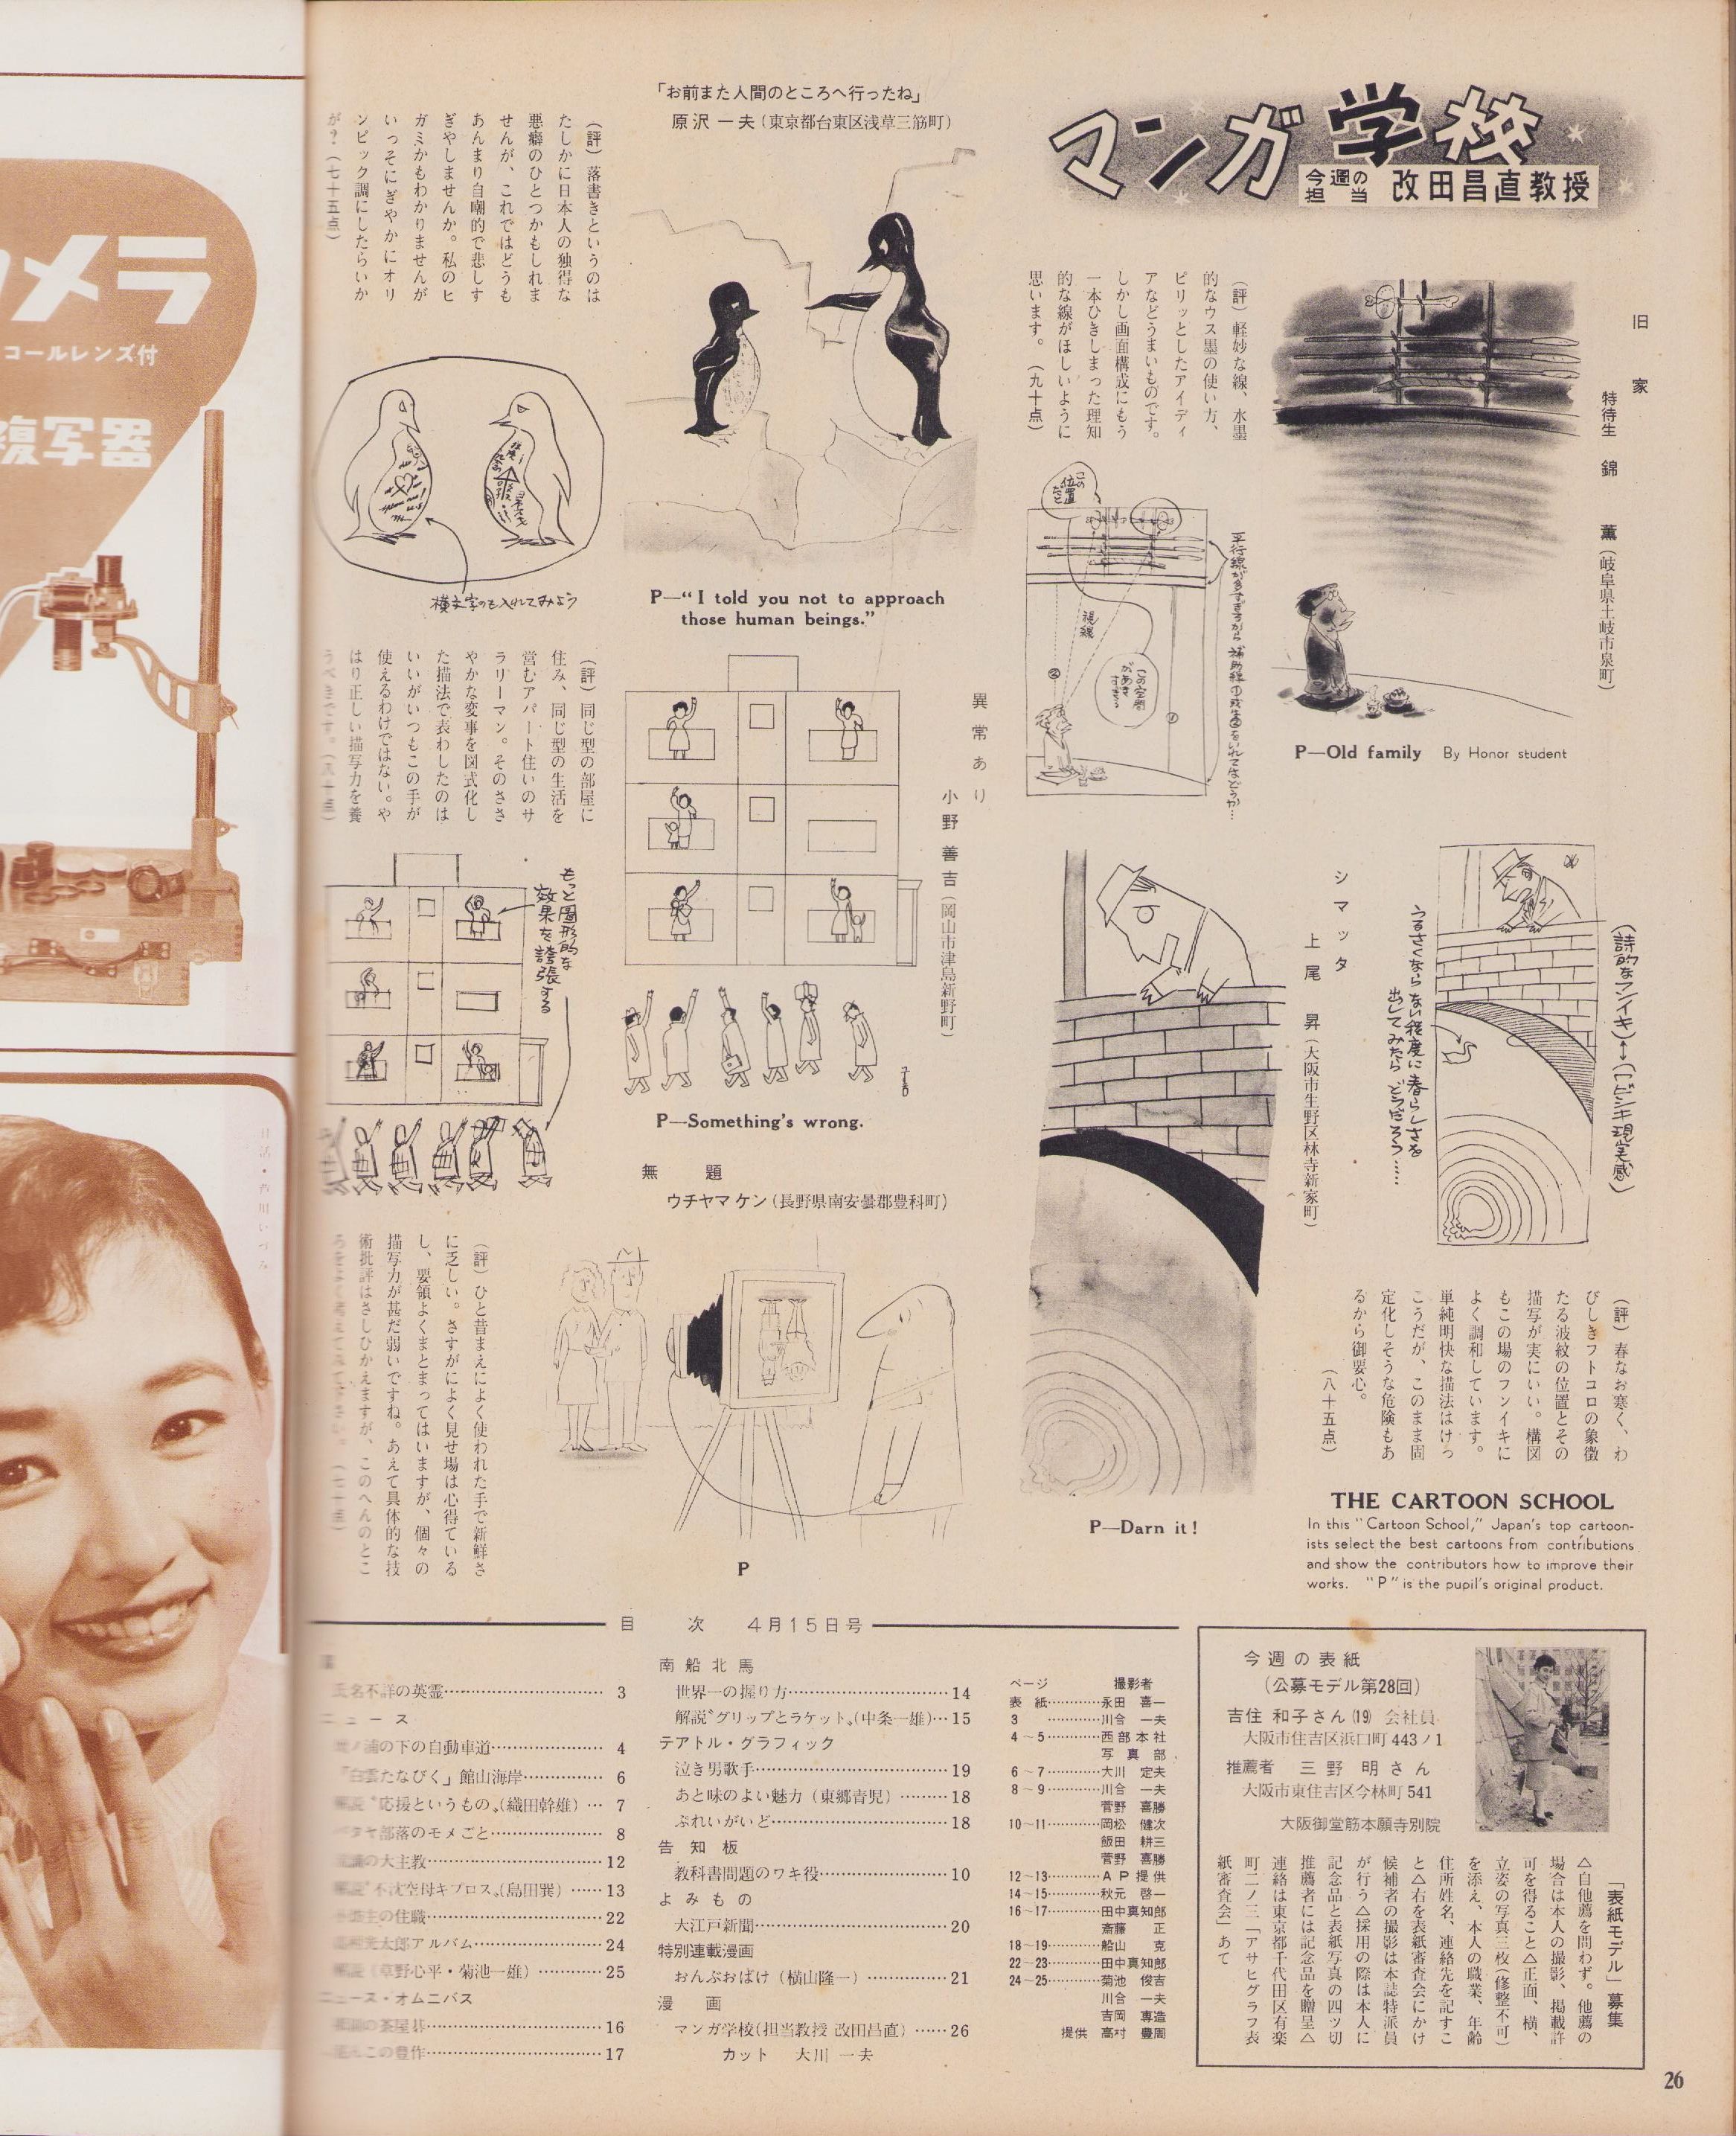 マンガ学校
今週の担当 改田昌直教授
旧家
特待生 錦 薫(岐阜県土岐市泉町)
P—Old family By Honor student
(評) 軽妙な線、水墨
的なウス墨の使い方、
ピリッとしたアイディ
アなどうまいものです。
しかし画面構成にもう
一本ひきしまった理知
的な線がほしいように
思います。 (九十点)
この位置だと
視線
この空間があきすぎる
平行線が多すぎるから 補助線の
シマッタ
上尾 昇(大阪市生野区林寺新家町)
P—Darn it!
(詩的なフンイキ)↔(ビシキ現実感)
うるさくならない程度に春らしさを
出してみたら どうだろう……
(評) 春なお寒く、わ
びしきフトコロの象徴
たる波紋の位置とその
描写が実にいい。構図
もこの場のフンイキに
よく調和しています。
単純明快な描法はけっ
こうだが、このまま固
定化しそうな危険もあ
るから御要心。
(八十五点)
THE CARTOON SCHOOL
In this "Cartoon School," Japan's top cartoon-
ists select the best cartoons from contributions
and show the contributors how to improve their
works. "P" is the pupil's original product.
「お前また人間のところへ行ったね」
原沢一夫(東京都台東区浅草三筋町)
P—"I told you not to approach
those human beings."
(評) 落書きというのは
たしかに日本人の独得な
悪癖のひとつかもしれま
せんが、これではどうも
あんまり自嘲的で悲しす
ぎやしませんか。私のヒ
ガミかもわかりませんが
いっそにぎやかにオリ
ンピック調にしたらいか
が?(七十五点)
横文字のも入れてみよう
異常あり
小野善吉(岡山市津島新野町)
P—Something's wrong.
(評) 同じ型の部屋に
住み、同じ型の生活を
営むアパート住いのサ
ラリーマン。そのささ
やかな変事を図式化し
た描法で表わしたのは
いいがいつもこの手が
使えるわけではない。や
はり正しい描写力を養
もっと図形的な
効果を誇張する
無題
ウチヤマケン(長野県南安曇郡豊科町)
P
(評) ひと昔まえによく使われた手で新鮮さ
に乏しい。さすがによく見せ場は心得ている
し、要領よくまとまってはいますが、個々の
描写力が甚だ弱いですね。あえて具体的な技
術批評はさしひかえますが、このへんのとこ
目次 4月15日号
氏名不詳の英霊 3
ニュース
の下の自動車道 4
「白雲たなびく」館山海岸 6
解説〝応援というもの〟(織田幹雄) 7
部落のモメごと 8
の大主教 12
解説〝不沈空母キプロス〟(島田巽) 13
の住職 22
光太郎アルバム 24
解説(草野心平・菊池一雄) 25
ニュース・オムニバス
の茶屋碁 16
この豊作 17
南船北馬
世界一の握り方 14
解説〝グリップとラケット〟(中条一雄) 15
テアトル・グラフィック
泣き男歌手 19
あと味のよい魅力(東郷青児) 18
ぷれいがいど 18
告知板
教科書問題のワキ役 10
よみもの
大江戸新聞 20
特別連載漫画
おんぶおばけ(横山隆一) 21
漫画
マンガ学校(担当教授 改田昌直) 26
カット 大川一夫
ページ 撮影者
表紙 永田喜一
3 川合一夫
4~5 西部本社
写真部
6~7 大川定夫
8~9 川合一夫
菅野喜勝
10~11 岡松健次
飯田耕三
菅野喜勝
12~13 AP提供
14~15 秋元啓一
16~17 田中真知郎
斎藤正
18~19 船山克
22~23 田中真知郎
24~25 菊池俊吉
川合一夫
吉岡専造
提供 高村豊周
今週の表紙
(公募モデル第28回)
吉住和子さん(19) 会社員
大阪市住吉区浜口町443ノ1
推薦者 三野明さん
大阪市東住吉区今林町541
大阪御堂筋本願寺別院
「表紙モデル」募集
△自他薦を問わず。他薦の
場合は本人の撮影、掲載許
可を得ること△正面、横、
立姿の写真三枚(修整不可)
を添え、本人の職業、年齢
住所姓名、連絡先を記すこ
と△右を表紙審査会にかけ
候補者の撮影は本誌特派員
が行う△採用の際は本人に
記念品と表紙写真の四ツ切
推薦者には記念品を贈呈△
連絡は東京都千代田区有楽
町二ノ三「アサヒグラフ表
紙審査会」あて
26
カメラ
コールレンズ付
複写器